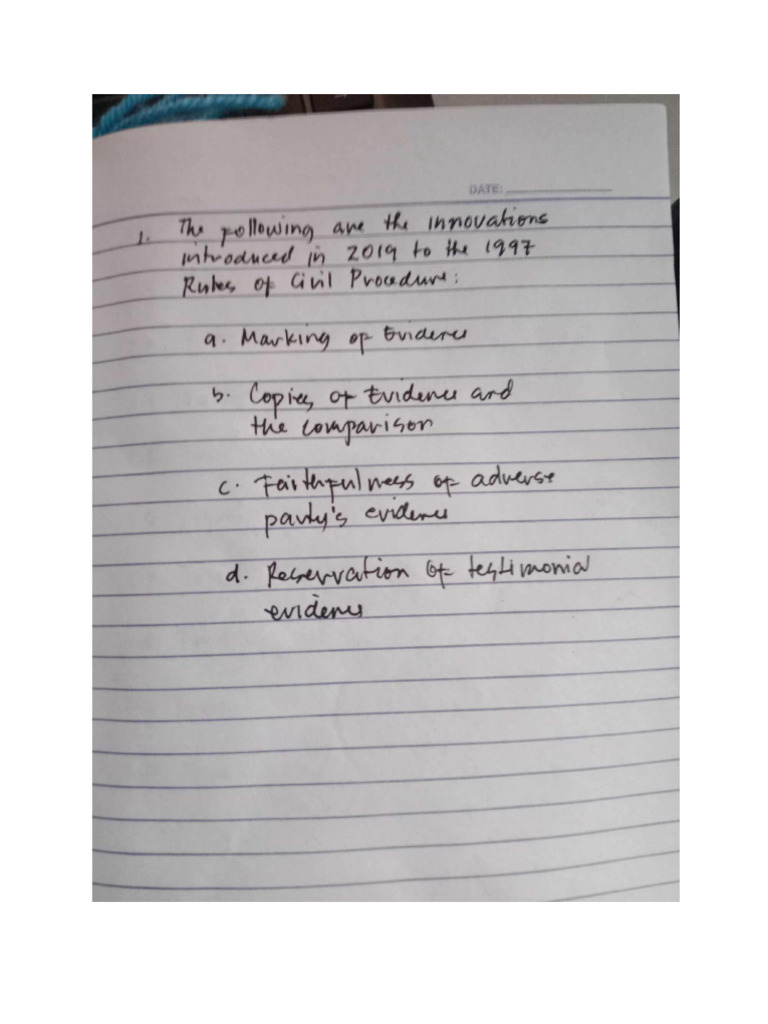 DATE:
1. The following are the innovations
introduced in 2019 to the 1997
Rules of Civil Procedure:
a. Marking of Evidence
b. Copies of Evidence and
the comparison
c. Faithfulness of adverse
party's evidence
d. Reservation of testimonial
evidence